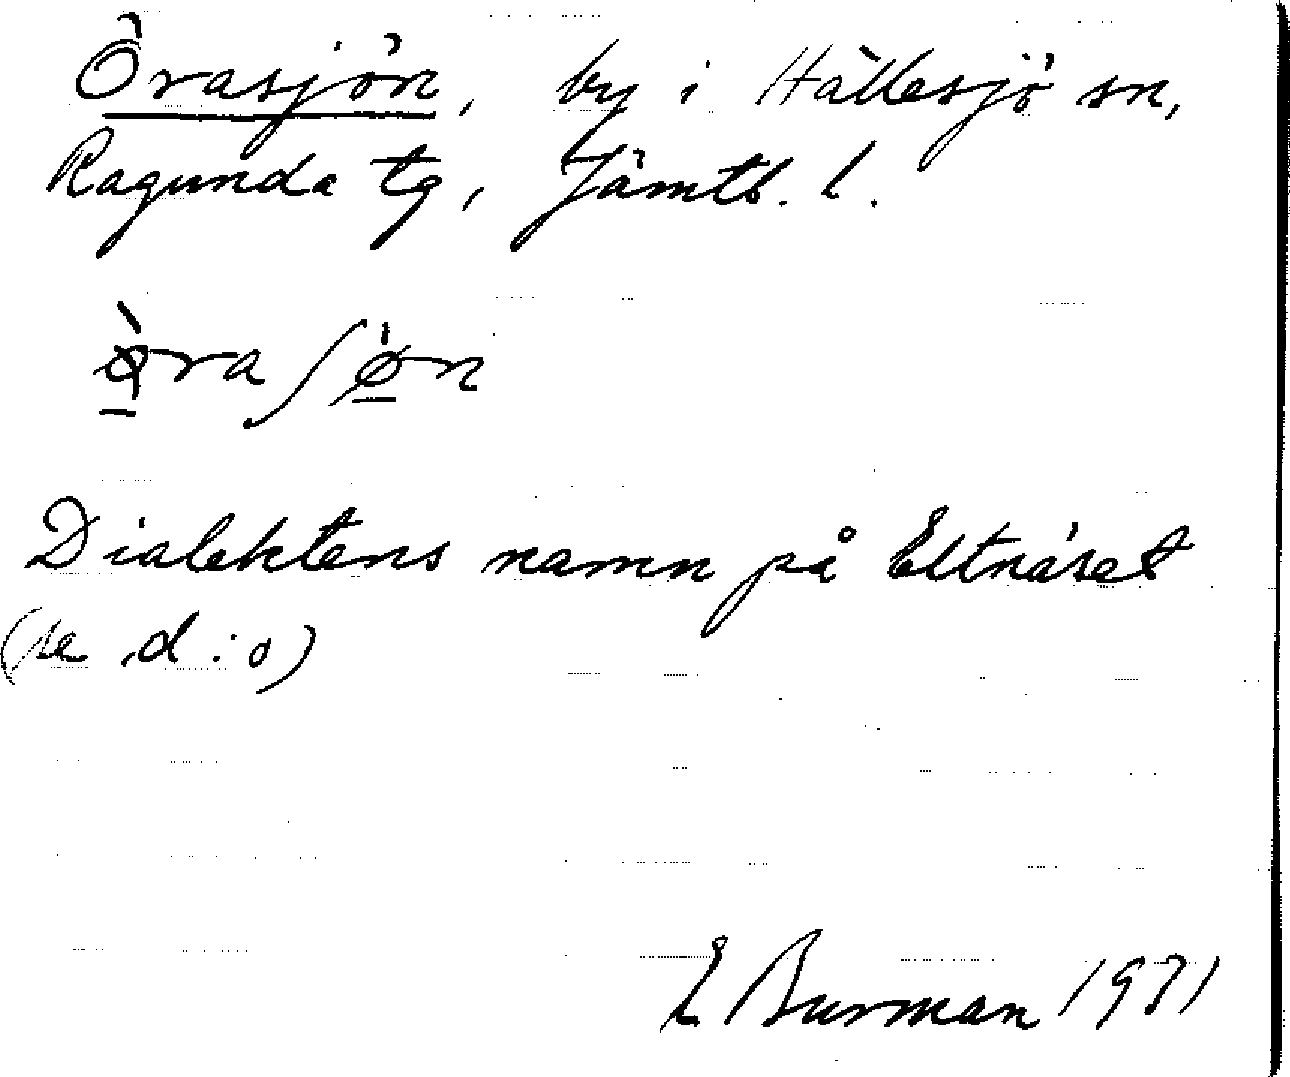 Örasjön, by i Hällesjö sn,
Ragunda tg, Jämtl. l.
ø̀ra ʃǿn
Dialektens namn på Eltnäset
(se d:o)
E Burman 1931